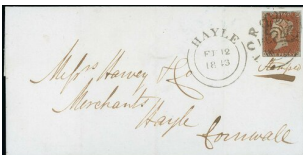 HAYLE
1843
Messrs Harvey & Co
Merchants
Hayle
Cornwall